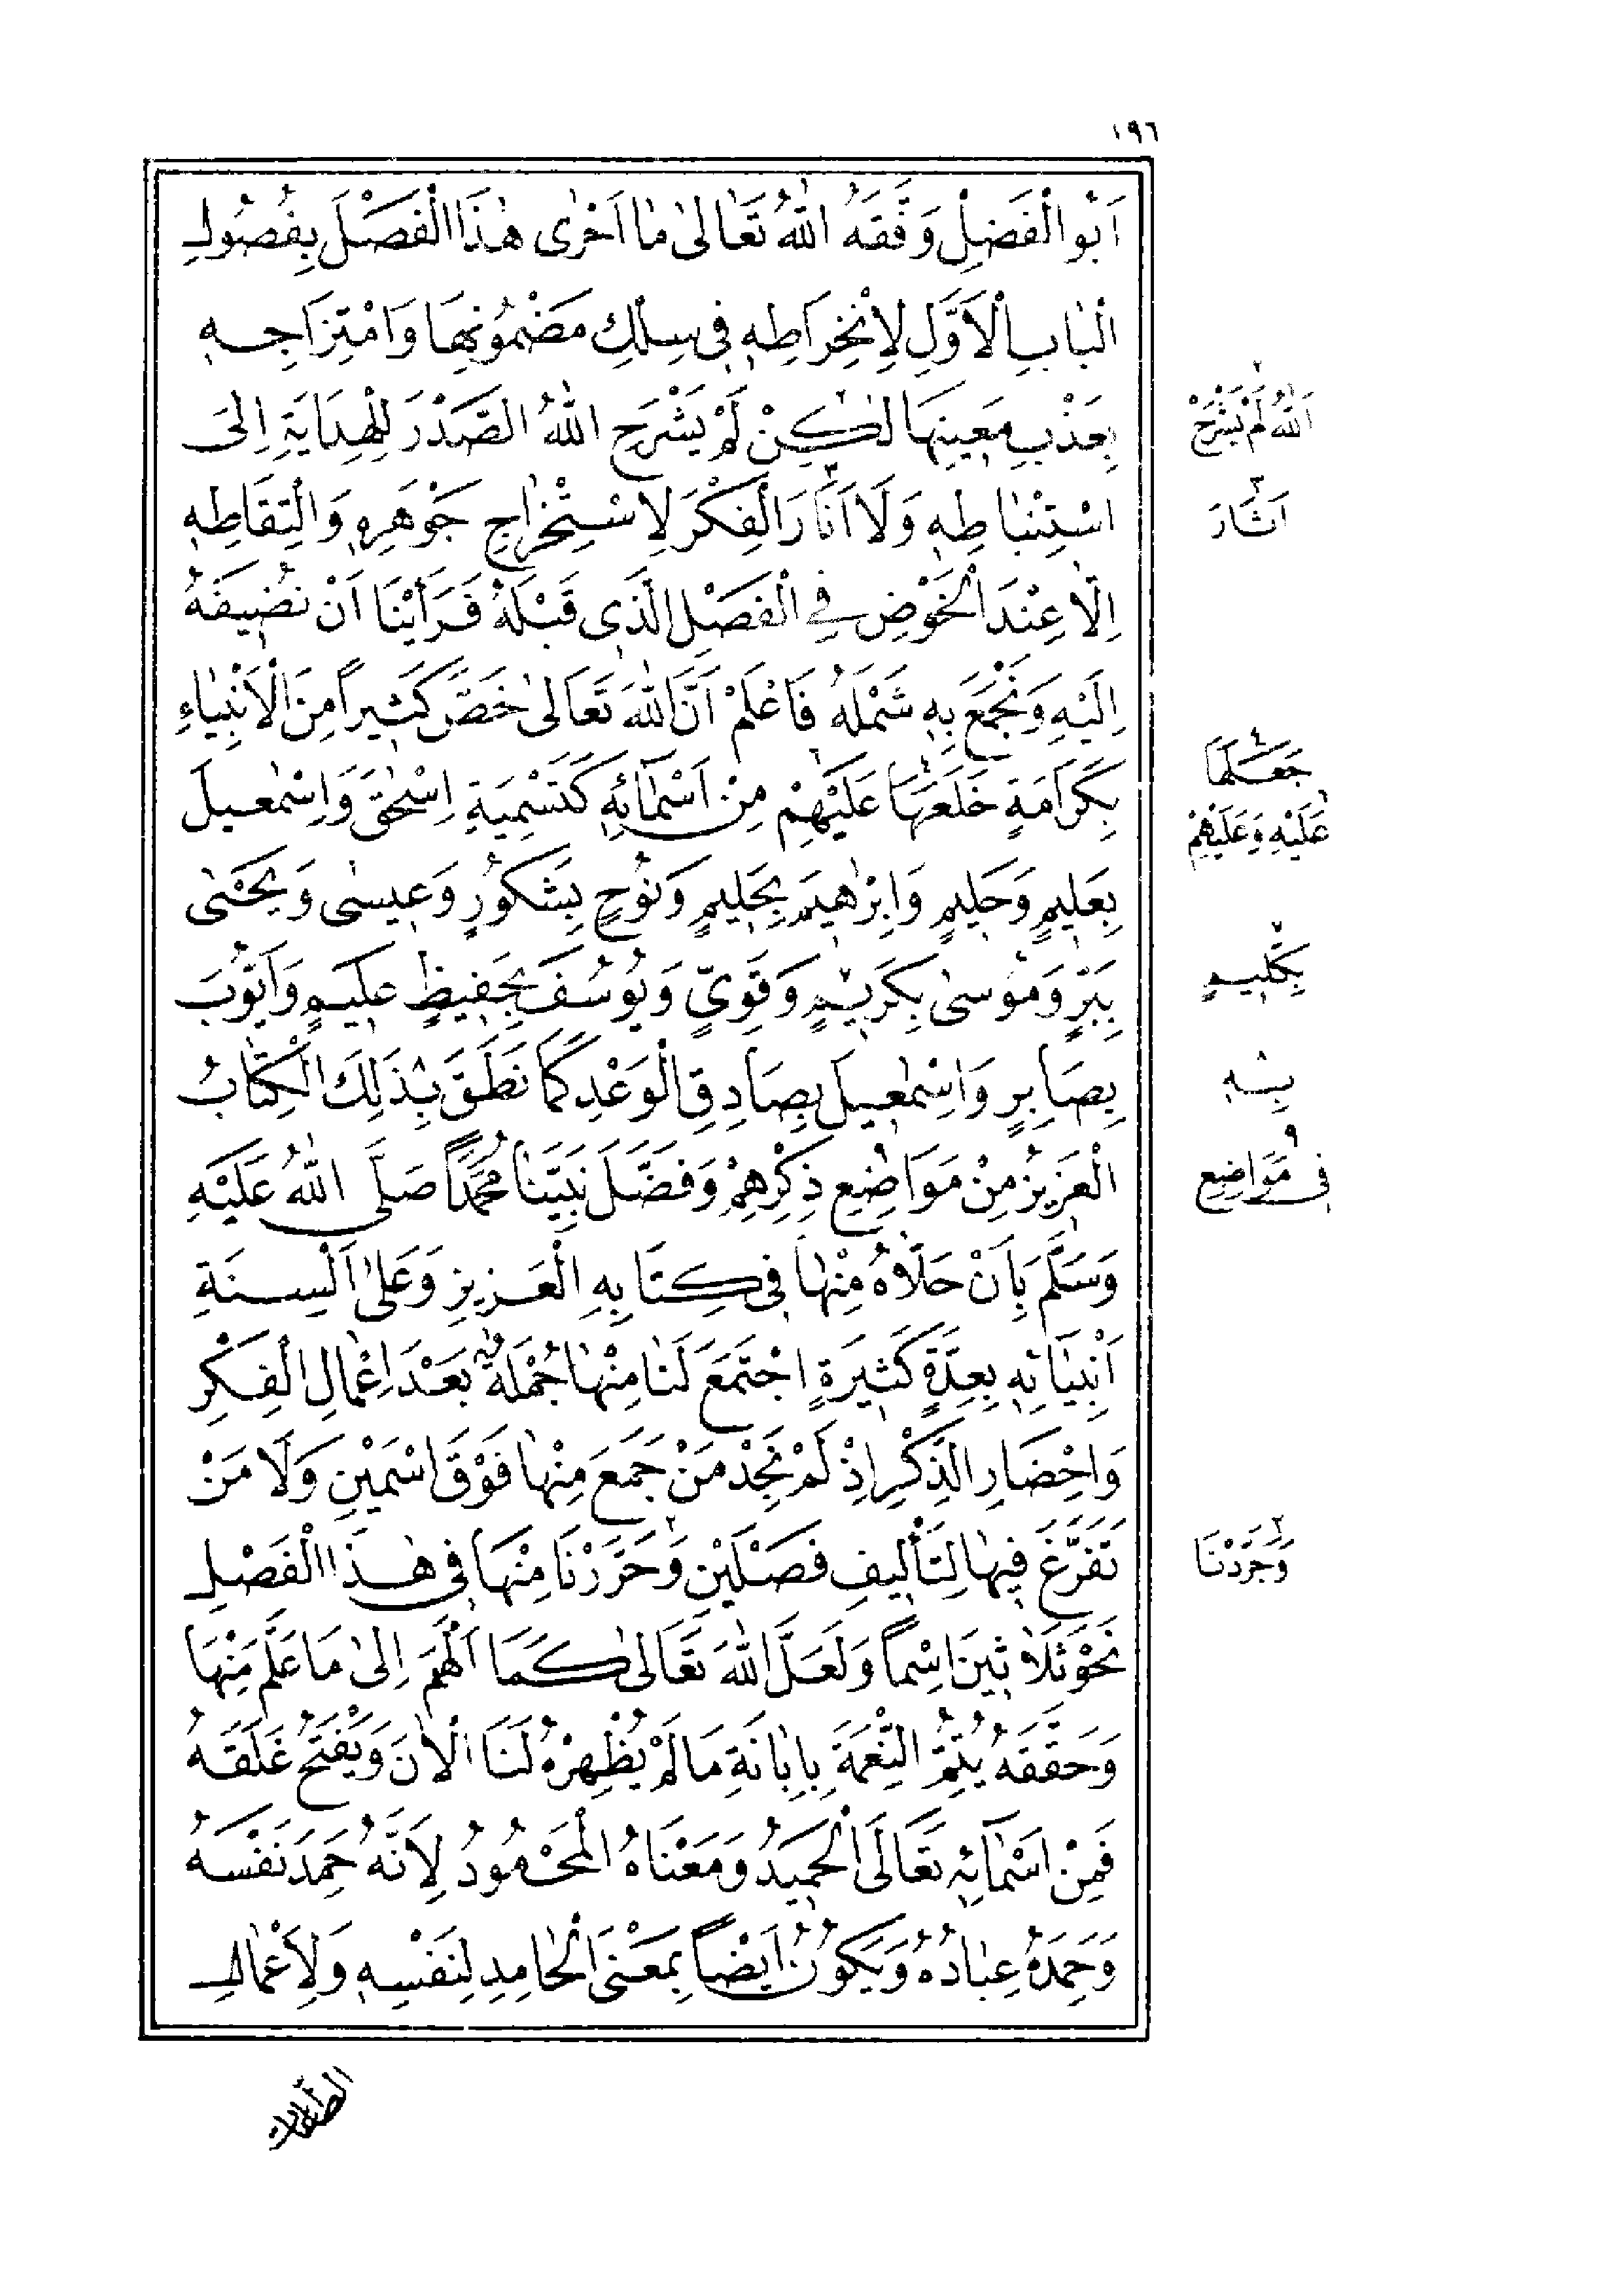 ١٩٦
اَبُو الْفَضْلِ وَفَّقَهُ اللّٰهُ تَعَالٰى مٰا اَحْرٰى هٰذَا الْفَصْلَ بِفُصُولِ
الْبٰابِ الْاَوَّلِ لِانْخِرَاطِهِ فِى سِلْكِ مَضْمُونِهَا وَامْتِزَاجِهِ
بِعَذْبِ مَعِينِهَا لٰكِنْ لَمْ يَشْرَحِ اللّٰهُ الصَّدْرَ لِلْهِدَايَةِ اِلَى
اسْتِنْبٰاطِهِ وَلَا اَنَارَ الْفِكْرَ لِاسْتِخْرٰاجِ جَوْهَرِهِ وَالْتِقَاطِهِ
اِلَّا عِنْدَ الْخَوْضِ فِى الْفَصْلِ الَّذِى قَبْلَهُ فَرَأَيْنَا اَنْ نُضِيفَهُ
اِلَيْهِ وَنَجْمَعَ بِهِ شَمْلَهُ فَاعْلَمْ اَنَّ اللّٰهَ تَعَالٰى خَصَّ كَثِيراً مِنَ الْاَنْبِيٰاءِ
بِكَرَامَةٍ خَلَعَهَا عَلَيْهِمْ مِنْ اَسْمٰائِهِ كَتَسْمِيَةِ اِسْحٰقَ وَاِسْمٰعِيلَ
بِعَلِيمٍ وَحَلِيمٍ وَاِبْرٰهِيمَ بِحَلِيمٍ وَنُوحٍ بِشَكُورٍ وَعِيسٰى وَيَحْيٰى
بِبَرٍّ وَمُوسٰى بِكَرِيمٍ وَقَوِىٍّ وَيُوسُفَ بِحَفِيظٍ عَلِيمٍ وَاَيُّوبَ
بِصَابِرٍ وَاِسْمٰعِيلَ بِصَادِقِ الْوَعْدِ كَمَا نَطَقَ بِذٰلِكَ الْكِتَابُ
الْعَزِيزُ مِنْ مَوَاضِعِ ذِكْرِهِمْ وَفَضَّلَ نَبِيَّنٰا مُحَمَّداً صَلَّى اللّٰهُ عَلَيْهِ
وَسَلَّمَ بِاَنْ حَلَّاهُ مِنْهٰا فِى كِتَابِهِ الْعَزِيزِ وَعَلٰى اَلْسِنَةِ
اَنْبِيٰائِهِ بِعِدَّةٍ كَثِيرَةٍ اجْتَمَعَ لَنٰا مِنْهٰا جُمْلَةٌ بَعْدَ اِعْمٰالِ الْفِكْرِ
وَاِحْضَارِ الذِّكْرِ اِذْ لَمْ نَجِدْ مَنْ جَمَعَ مِنْهٰا فَوْقَ اسْمَيْنِ وَلَا مَنْ
تَفَرَّغَ فِيهٰا لِتَأْلِيفِ فَصْلَيْنِ وَحَرَّرْنَا مِنْهَا فِى هٰذَا الْفَصْلِ
نَحْوَ ثَلَاثِينَ اسْماً وَلَعَلَّ اللّٰهَ تَعَالٰى كَمَا اَلْهَمَ اِلٰى مَا عَلَّمَ مِنْهَا
وَحَقَّقَهُ يُتِمُّ النِّعْمَةَ بِاِبٰانَةِ مَا لَمْ يُظْهِرْهُ لَنَا الْاٰنَ وَيَفْتَحُ غَلَقَهُ
فَمِنْ اَسْمٰائِهِ تَعَالَى الْحَمِيدُ وَمَعْنَاهُ الْمَحْمُودُ لِاَنَّهُ حَمِدَ نَفْسَهُ
وَحَمِدَهُ عِبٰادُهُ وَيَكُونُ اَيْضاً بِمَعْنَى الْحٰامِدِ لِنَفْسِهِ وَلِاَعْمٰالِ
الطَّاعَاتِ
٢ اَللّٰهُ لَمْ يَشْرَحْ
٣ اَثَارَ
٤ جَعَلَهَا
٦ عَلَيْهِ وَعَلَيْهِمْ
٧ بِكَلِيمٍ
٨ بِهِ
٩ فِى مَوَاضِعِ
٢ وَجَرَّدْنَا